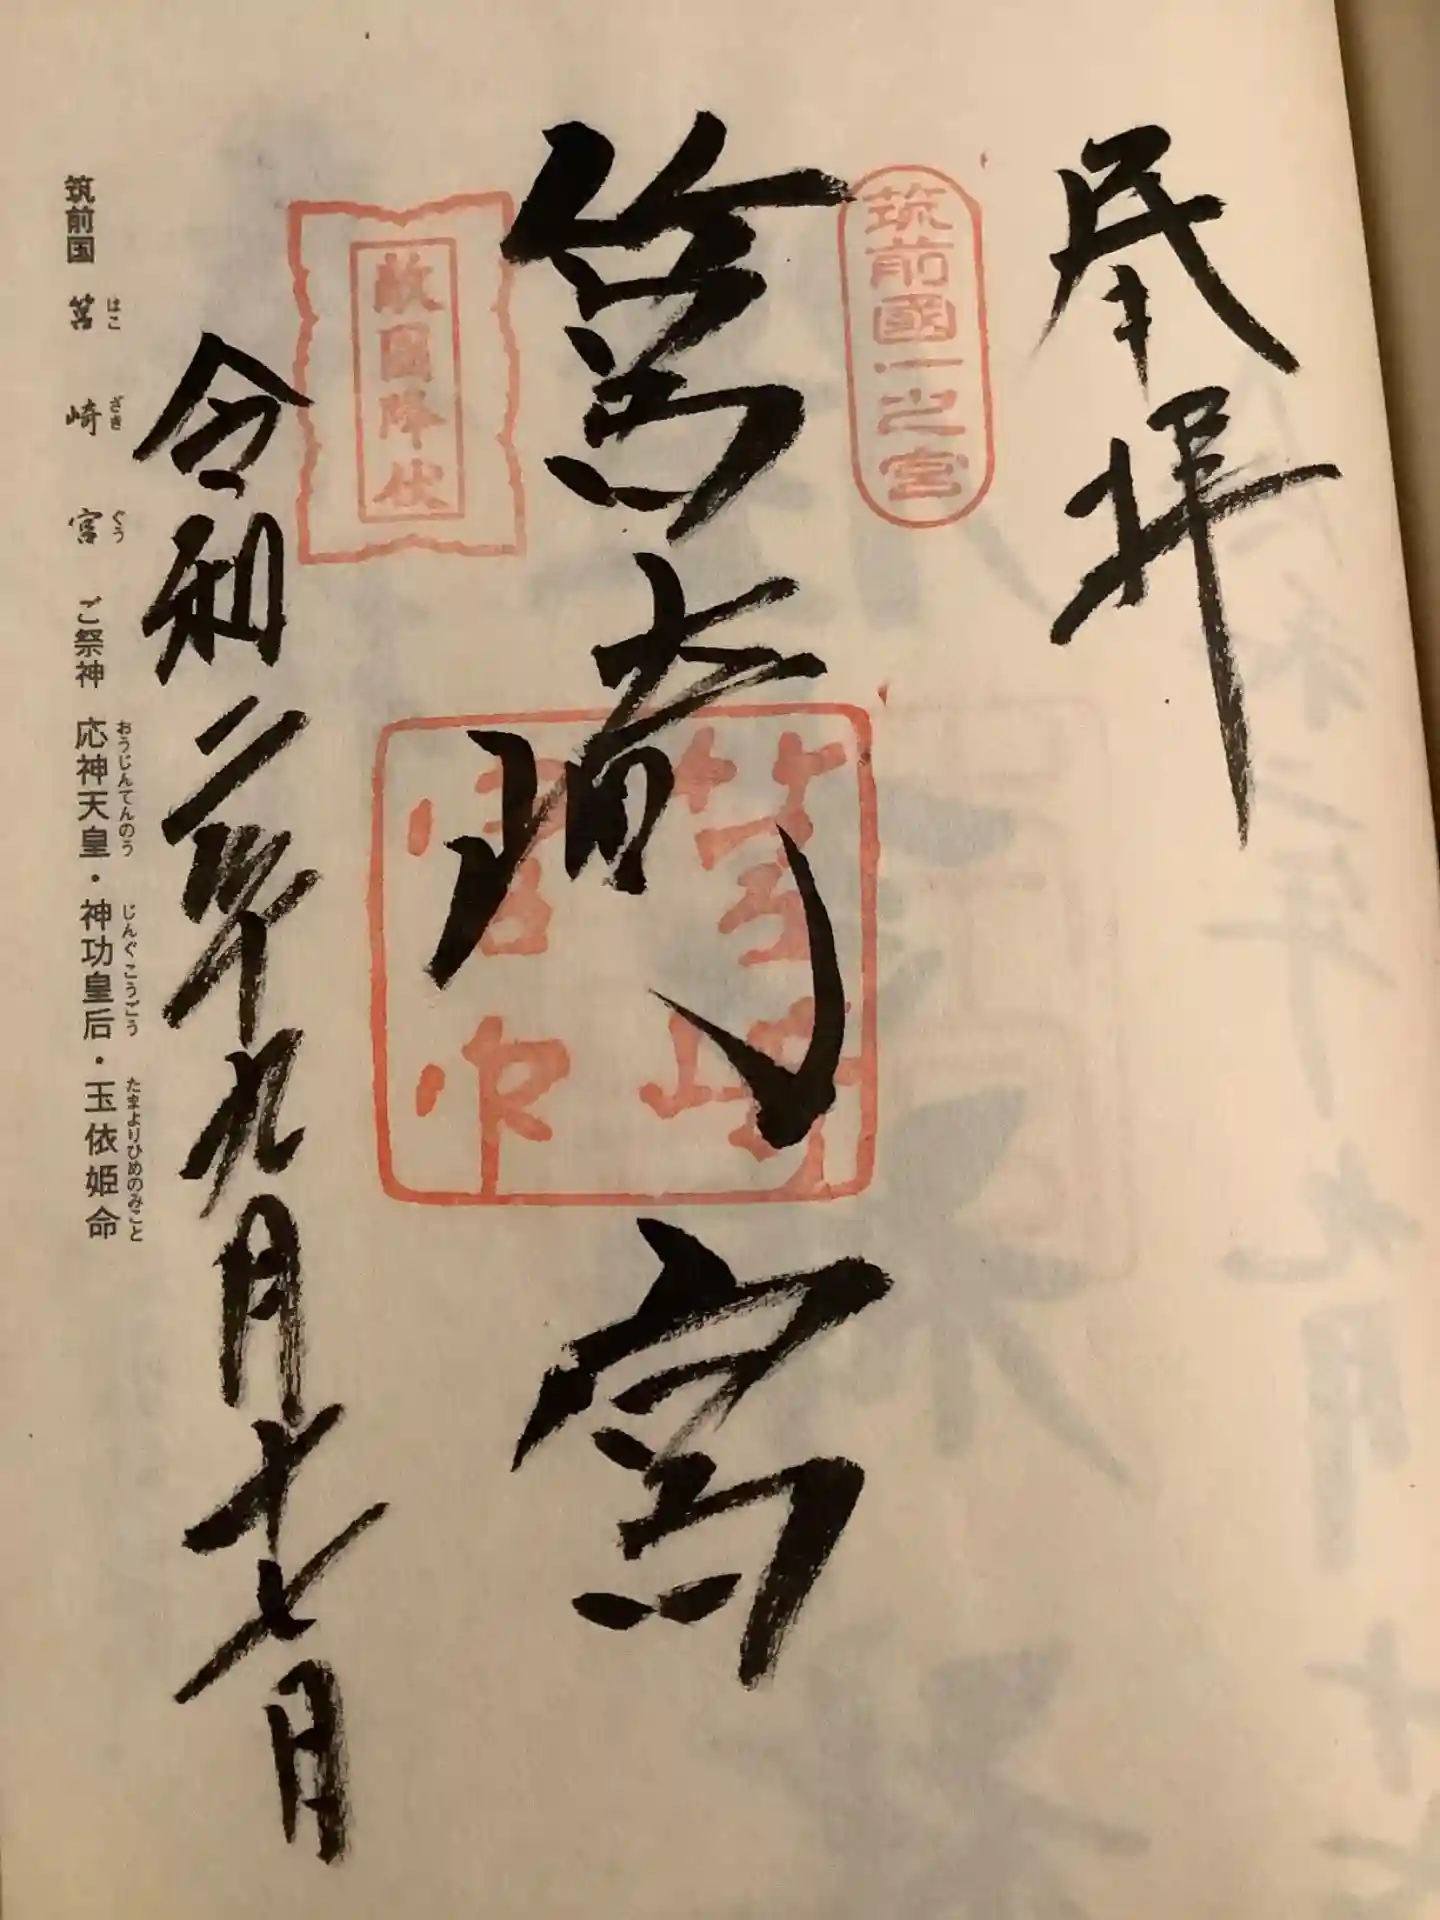 奉拝
筑前國一之宮
筥崎宮
筥崎
宮印
敵國降伏
令和二年九月十七日
筑前国 筥崎宮 ご祭神 応神天皇・神功皇后・玉依姫命
はこ ざき ぐう おうじんてんのう じんぐこうごう たまよりひめのみこと